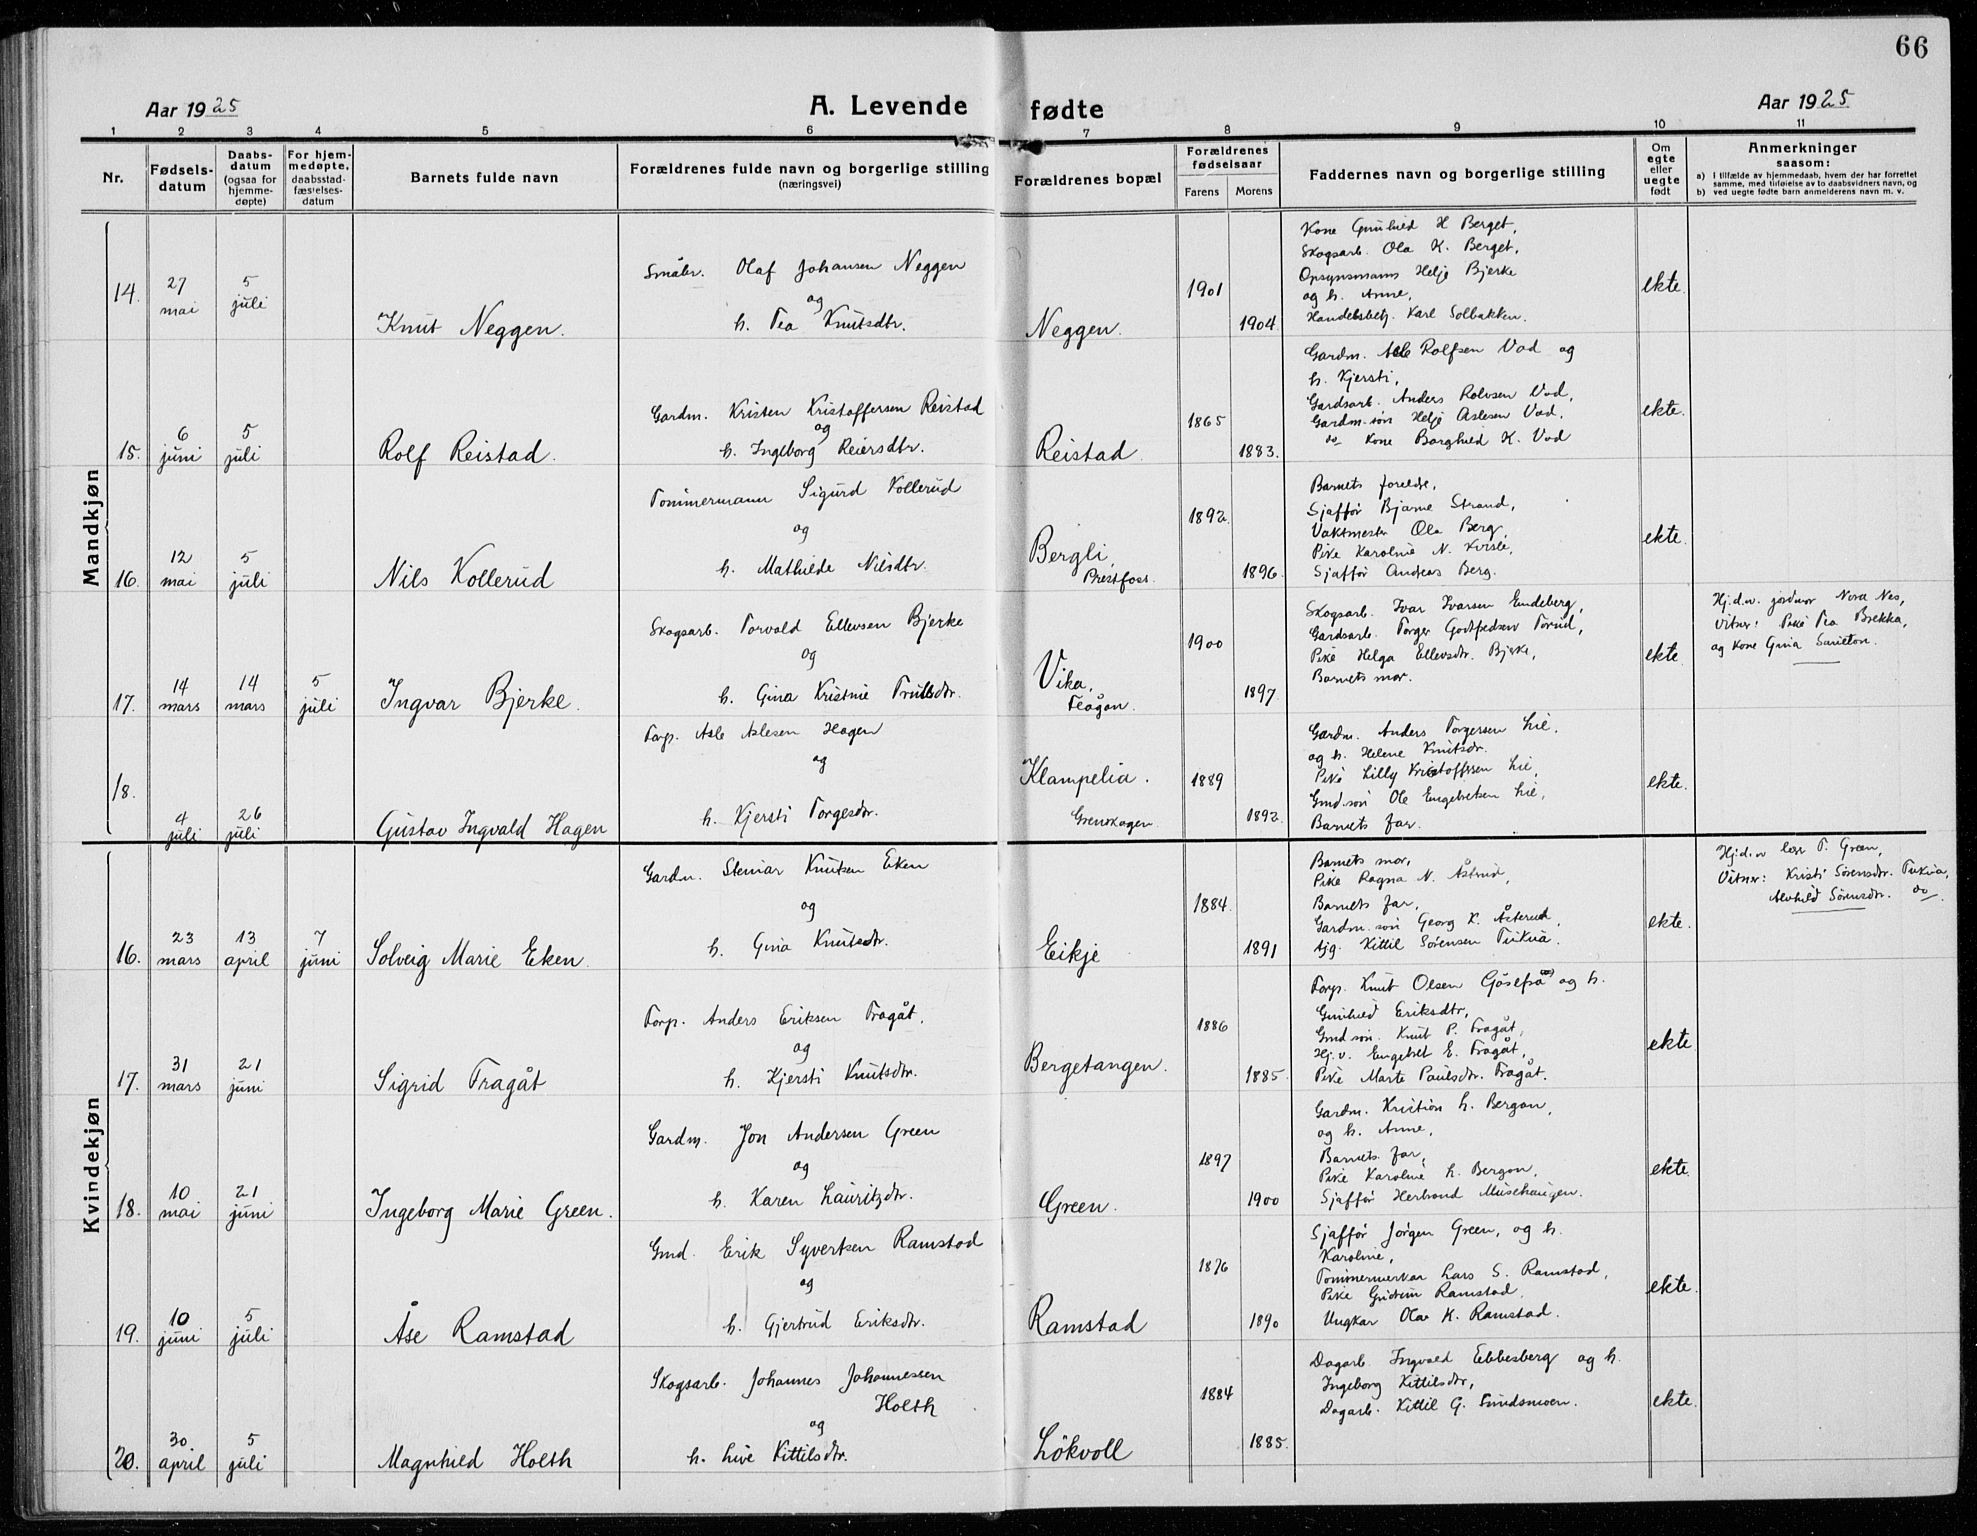 66
Aar 1925
A. Levende fødte
Aar 1925
1 2 3 4 5 6 7 8 9 10 11
Nr.
Fødsels-datum
Daabs-datum (ogsaa for hjemme-døpte)
For hjem-medøpte, daabsstad-fæstelses-datum
Barnets fulde navn
Forældrenes fulde navn og borgerlige stilling (næringsvei)
Forældrenes bopæl
Forældrenes fødselsaar
Farens
Morens
Faddernes navn og borgerlige stilling
Om egte eller uegte født
Anmerkninger
saasom:
a) i tilfælde av hjemmedaab, hvem der har forrettet samme, med tilføielse av to daabsvidners navn, og
b) ved uegte fødte barn anmelderens navn m. v.
Mandkjøn
14.
27 mai
5 juli
Knut Neggen.
Småbr. Olaf Johansen Neggen
og
h. Tea Knutsdtr.
Neggen.
1901
1904.
Kone Gunhild H Berget,
Skogsarb. Ola K. Berget,
Opsynsmann Helje Bjerke
og h. Anne,
Handelsbetj. Karl Solbakken.
ekte.
15.
6 juni
5 juli
Rolf Reistad.
Gardm. Kristen Kristoffersen Reistad
og
h. Ingeborg Reiersdtr.
Reistad.
1865
1883.
Gardm. Asle Rolfsen Vad og
h. Kjersti,
Gardsarb. Anders Rolvsen Vad,
Gardm. søn Helje Aslesen Vad,
do Kone Borghild K. Vad
ekte.
16.
12 mai
5 juli
Nils Kollerud
Tømmermann Sigurd Kollerud
og
h. Mathilde Nilsdtr.
Bergli,
Prestfoss.
1892.
1896.
Barnets foreldre,
Sjaffør Bjarne Strand,
Vaktmester Ola Berg,
Pike Karoline N. Kvisle,
Sjaffør Andreas Berg.
ekte.
17.
14 mars
14 mars
5 juli
Ingvar Bjerke.
Skogsarb. Torvald Ellevsen Bjerke
og
h. Gina Kristine Trulsdtr.
Vika,
Flågan.
1900
1897.
Skogsarb. Ivar Ivarsen Endeberg,
Gardsarb. Torger Torud,
Pike Helga Ellevsdtr. Bjerke,
Barnets mor.
ekte.
Hj.d.v. jordmor Nora Nes,
vitner: Pike Tea Brekka,
og Kone Gina
18.
4 juli
26 juli
Gustav Ingvald Hagen
Torp. Asle Aslesen Hagen
og
h. Kjersti Torgesdtr.
Klampelia.
Grenskogen.
1889
1892.
Gardm. Anders Torgersen Lie,
og h. Helene Knutsdr.
Pike Lilly Kristoffersen Lie,
Gmd. søn Ole Engebretsen Lie,
Barnets far.
ekte.
Kvindekjøn
16.
23 mars
13 april
7 juni
Solveig Marie Eken.
Gardm. Steinar Knutsen Eken
og
h. Gina Knutsdr.
Eikje
1884.
1891
Barnets mor,
Pike Ragna N. Åstrud,
Barnets far,
Gardm. søn Georg K. Åsterud,
Kittil Sørensen Tukua.
ekte.
Hj.d.v lær. T. Green,
Vitner: Kristi Sørensdtr. Tukua,
Alvhild Sørensdtr. do
17.
31 mars
21 juni
Sigrid Fragåt
Torp. Anders Eriksen Fragåt,
og
h. Kjersti Knutsdtr.
Bergetangen.
1886
1885.
Torp. Knut Olsen og h.
Gunhild Eriksdtr,
Gmd søn. Knut P. Fragåt,
Hj.v. Engebret E. Fragåt,
Pike Marte Paulsdtr. Fragåt.
ekte
18.
10 mai
21 juni
Ingeborg Marie Green.
Gardm. Jon Andersen Green
og
h. Karen Lauritzdtr.
Green.
1897
1900
Gardm. Kristian H. Bergan,
og h. Anne,
Barnets far,
Pike Karoline H. Bergan,
Sjaffør Herbrand Musehaugen.
ekte.
19.
10 juni
5 juli
Åse Ramstad
Gmd. Erik Syvertsen Ramstad
og
h. Gjertrud Eriksdtr.
Ramstad
1876
1890
Sjaffør Jørgen Green, og h.
Karoline,
Tømmermerker Lars S. Ramstad,
Pike Ramstad,
Ungkar Olav K. Ramstad.
ekte.
20.
30 april
5 juli
Magnhild Holth
Skogsarb. Johannes Johannessen
Holth
og
h. Live Kittilsdtr.
Løkvoll
1884
1885.
Dagarb. Ingvald Ebbesberg og h.
Ingeborg Kittilsdtr,
Dagarb. Kittil G. Sundsmoen.
ekte.